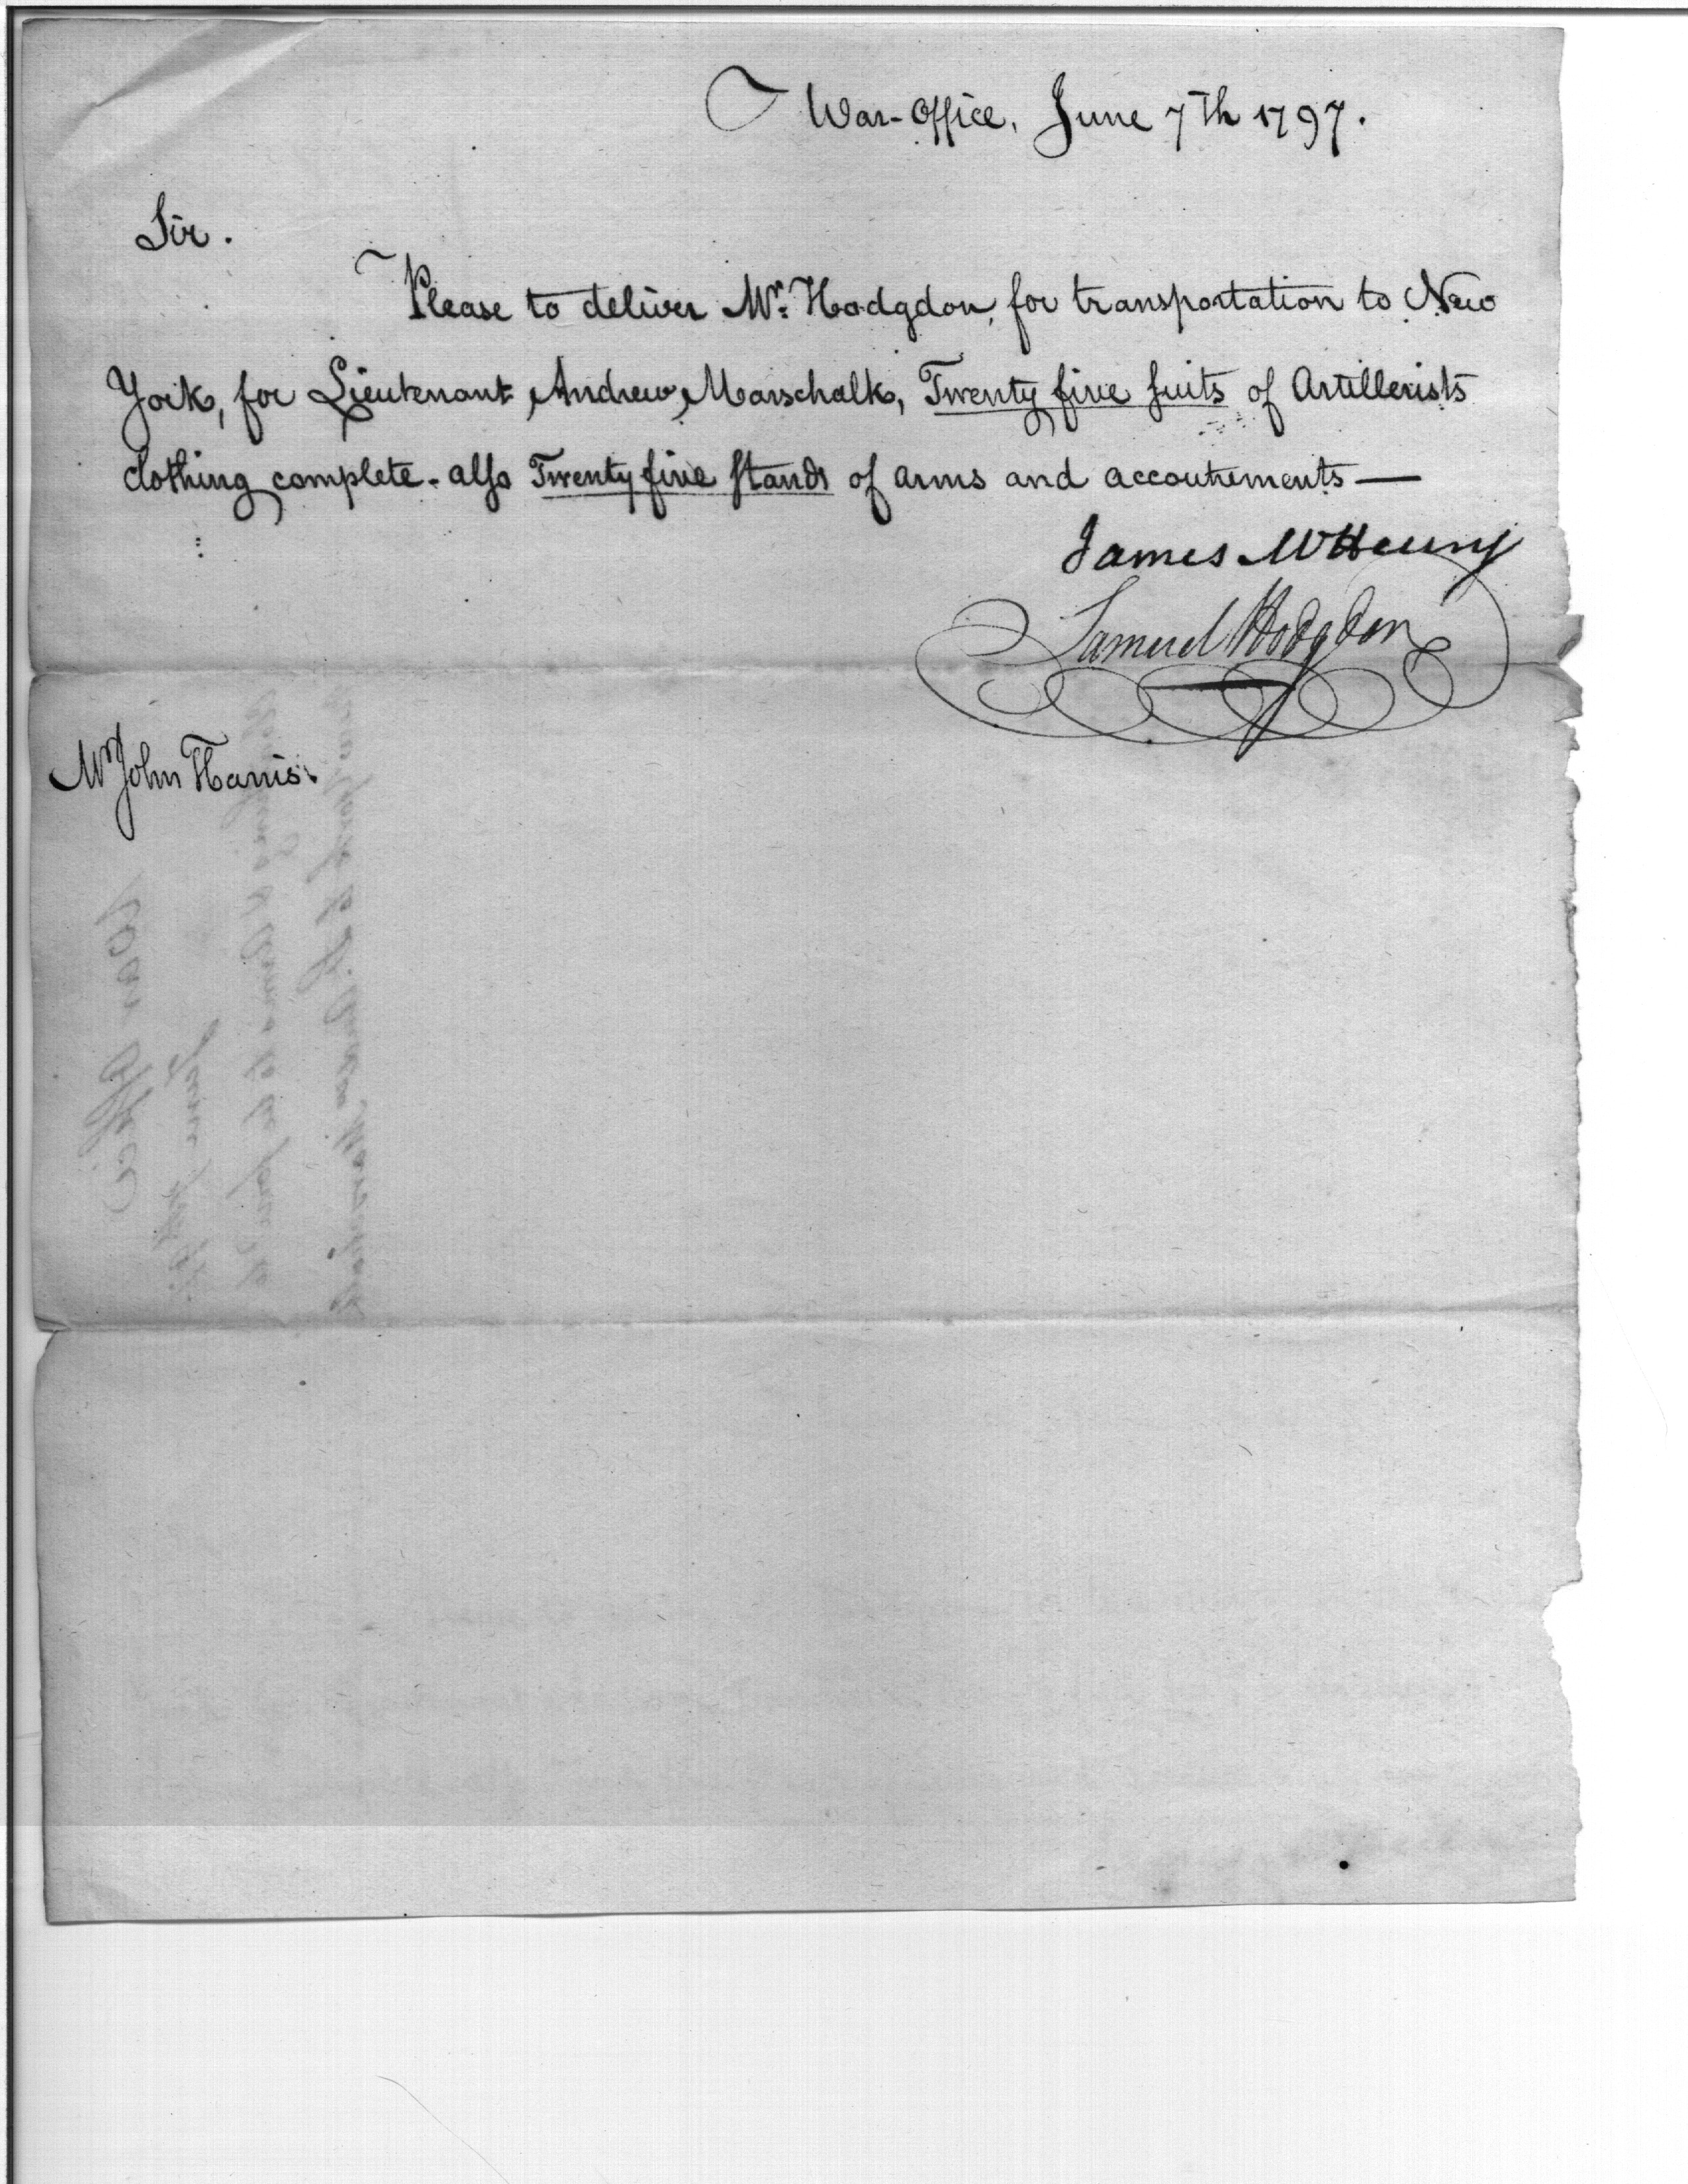 War-Office, June 7th 1797.
Sir.
Please to deliver Mr. Hodgdon, for transportation to New
York, for Lieutenant Andrew Marschalk, Twenty five suits of Artillerists
clothing complete - also Twenty five stands of arms and accoutrements —
James McHenry
Samuel Hodgdon
Mr John Harris.